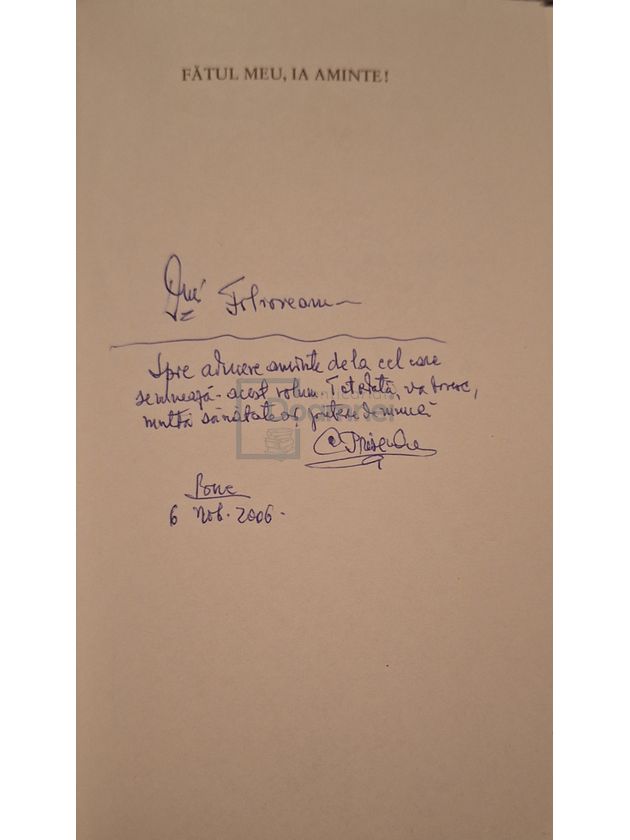 FĂTUL MEU, IA AMINTE!
Spre aducere aminte de la cel care
semnează - acest volum. Totodată, vă doresc,
multă sănătate și putere de muncă
6 Nob. 2006.